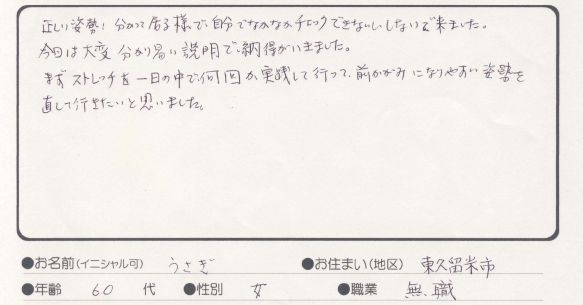 正しい姿勢！分かって居る様で、自分でなかなかチェックできないし、しないで来ました。
今日は大変分かり易い説明で、納得がいきました。
まずストレッチを一日の中で何回か実践して行って、前かがみになりやすい姿勢を
直して行きたいと思いました。
●お名前(イニシャル可) うさぎ ●お住まい(地区) 東久留米市
●年齢 60 代 ●性別 女 ●職業 無職